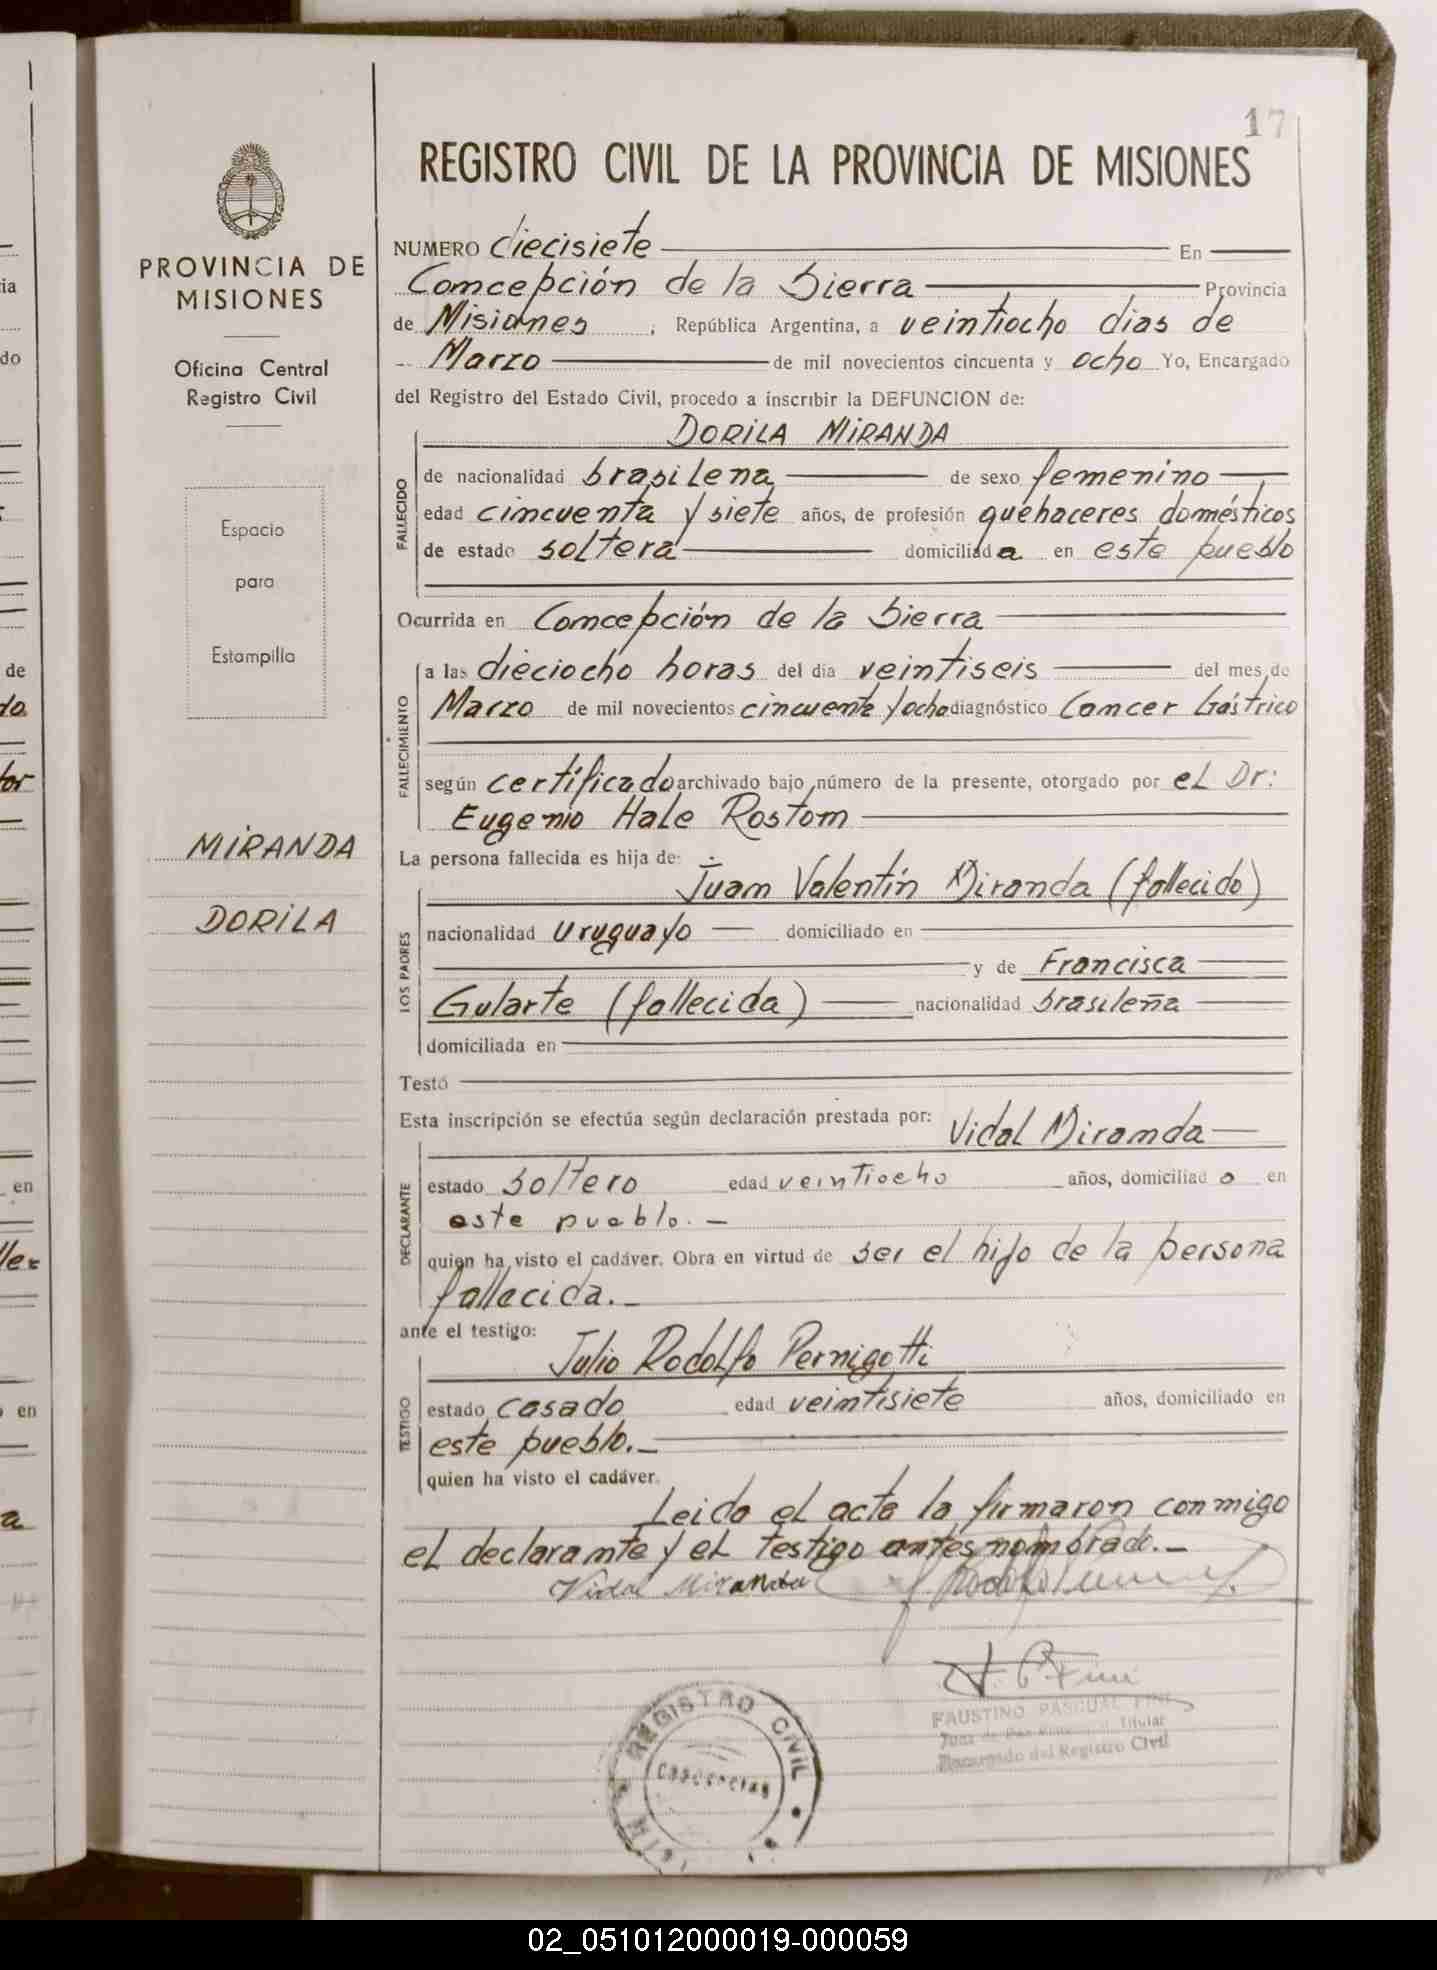 17
REGISTRO CIVIL DE LA PROVINCIA DE MISIONES
PROVINCIA DE
MISIONES
Oficina Central
Registro Civil
Espacio
para
Estampilla
MIRANDA
DORILA
NUMERO diecisiete En
Comcepción de la Sierra Provincia
de Misiones, República Argentina, a veintiocho dias de
Marzo de mil novecientos cincuenta y ocho Yo, Encargado
del Registro del Estado Civil, procedo a inscribir la DEFUNCION de:
DORILA MIRANDA
FALLECIDO
de nacionalidad brasilena de sexo femenino
edad cimcuenta y siete años, de profesión quehaceres domésticos
de estado soltera domiciliada en este pueblo
Ocurrida en Comcepción de la Sierra
FALLECIMIENTO
a las dieciocho horas del dia veintiseis del mes de
Marzo de mil novecientos cincuenta y ocho diagnóstico Cancer Gástrico
según certificado archivado bajo número de la presente, otorgado por el Dr:
Eugenio Hale Rostom
La persona fallecida es hija de:
Juam Valentín Miranda (fallecido)
LOS PADRES
nacionalidad uruguayo domiciliado en
y de Francisca
Gularte (fallecida) nacionalidad brasileña
domiciliada en
Testó
Esta inscripción se efectúa según declaración prestada por: Vidal Miramda
DECLARANTE
estado soltero edad veintiocho años, domiciliado en
este pueblo.-
quien ha visto el cadáver. Obra en virtud de ser el hijo de la persona
fallecida.-
ante el testigo:
Julio Rodolfo Pernigotti
TESTIGO
estado casado edad veimtisiete años, domiciliado en
este pueblo.-
quien ha visto el cadáver.
Leida el acta la firmaron conmigo
el declaramte y el testigo antes nombrado.-
Vidal Miranda
FAUSTINO PASCUAL FINI
Juez de Paz Titular
Encargado del Registro Civil
REGISTRO CIVIL
02_051012000019-000059